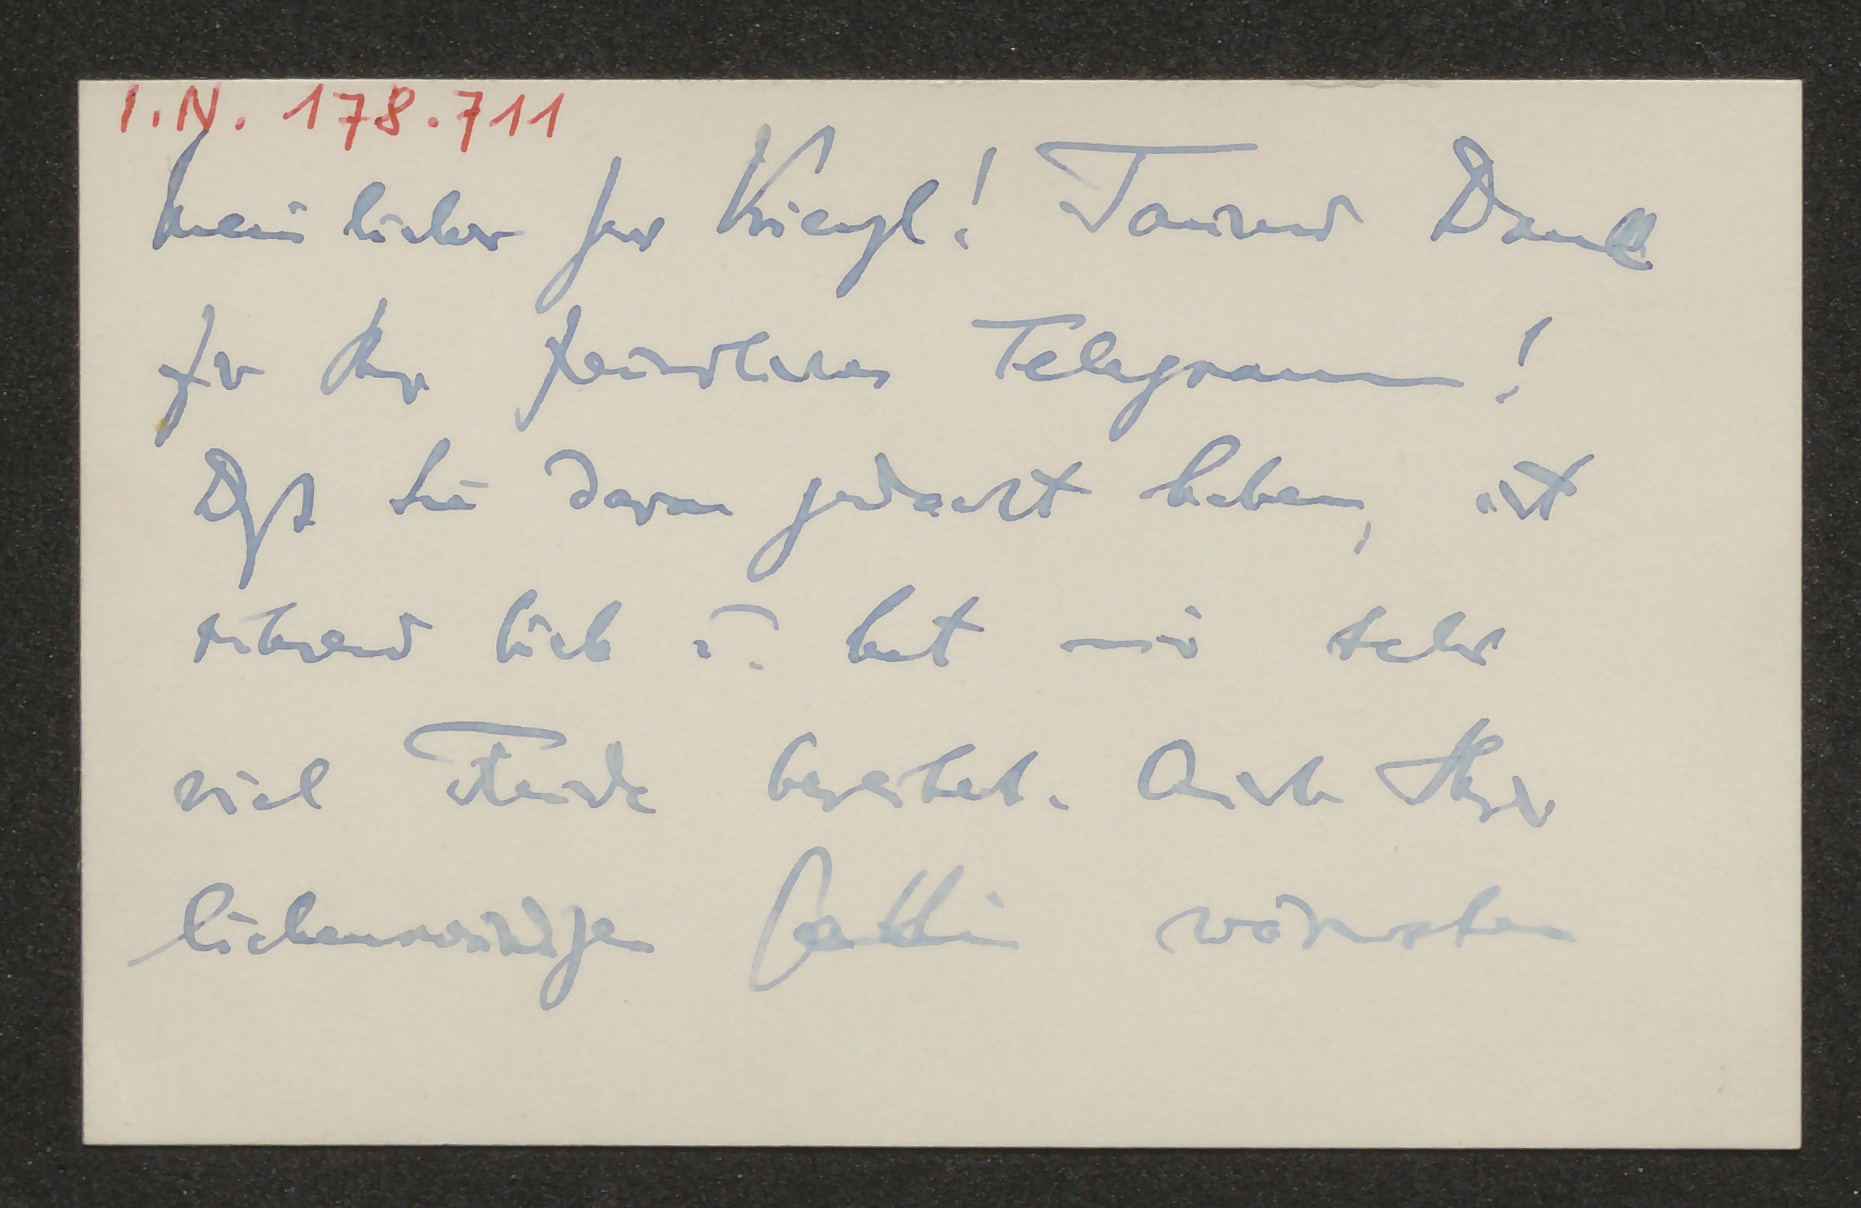 I.N. 178.711
Mein lieber Herr Kriegl! Tausend Dank
für Ihr freundliches Telegramm!
Daß Sie daran gedacht haben, ist
rührend lieb u. hat mir sehr
viel Freude bereitet. Auch Ihrer
liebenswürdigen Gattin wärmsten